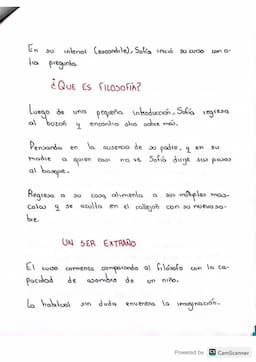 En su interior (escondite), Sofía inició su curso con o-
tra pregunta.
¿QUE ES FILOSOFÍA?
Luego de una pequeña introducción, Sofía regresa
al buzón y encontró otro sobre más.
Pensando en la ausencia de su padre, y en su
madre a quien casi no ve Sofía dirige sus pasos
al bosque.
Regresa a su casa, alimenta a sus múltiples mas-
cotas y se oculta en el callejón con su nuevo so-
bre.
UN SER EXTRAÑO
El curso comienza comparando al filósofo con la ca-
pacidad de asombro de un niño.
Lo habitual sin duda envenena la imaginación.
Powered by CS CamScanner